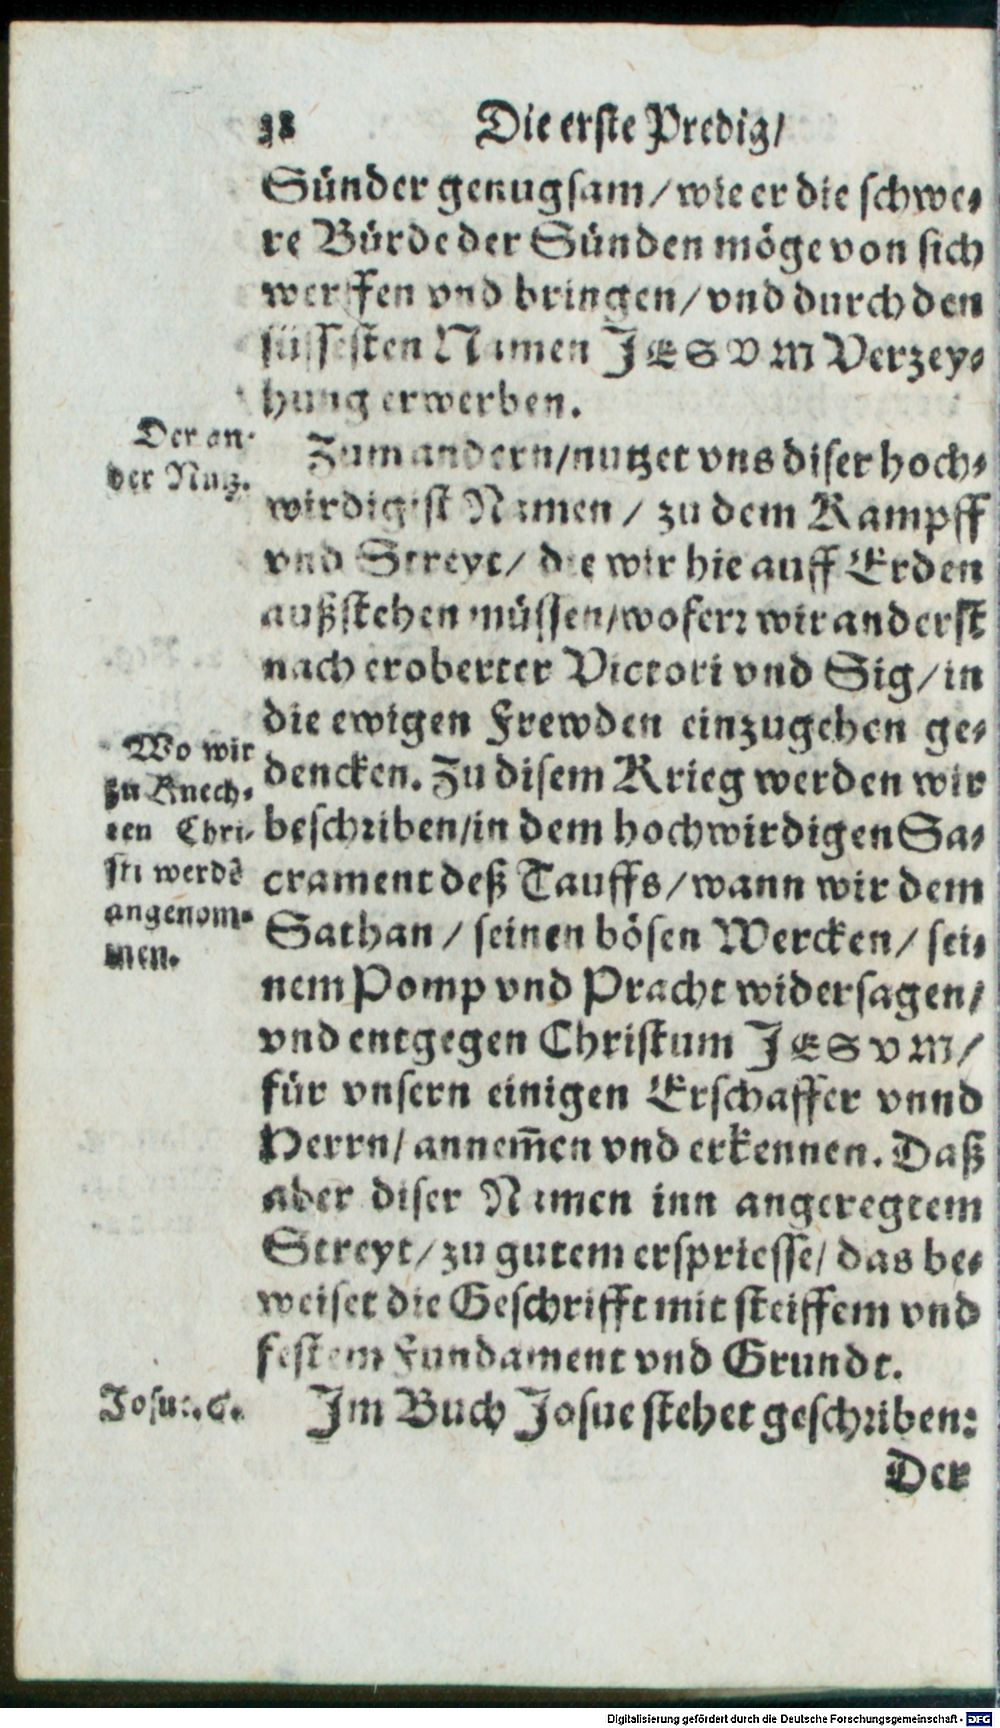 38 Die erste Predig/
Sünder genugsam/wie er die schwe-
re Bürde der Sünden möge von sich
werffen vnd bringen/vnd durch den
süssesten Namen JESVM Verzey-
hung erwerben.
Der an-
der Nutz.
Zum andern/nutzet vns diser hoch-
wirdigist Namen / zu dem Kampff
vnd Streyt/ die wir hie auff Erden
außstehen müssen/wofern wir anderst
nach eroberter Victori vnd Sig/in
die ewigen Frewden einzugehen ge-
dencken. Zu disem Krieg werden wir
beschriben/in dem hochwirdigen Sa-
crament deß Tauffs/wann wir dem
Sathan / seinen bösen Wercken/ sei-
nem Pomp vnd Pracht widersagen/
vnd entgegen Christum JESVM/
für vnsern einigen Erschaffer vnnd
Herrn/annem̃en vnd erkennen. Daß
aber diser Namen inn angeregtem
Streyt/zu gutem erspriesse/das be-
weiset die Geschrifft mit steiffem vnd
festem Fundament vnd Grundt.
Wo wir
zu Knech-
ten Chri-
sti werdẽ
angenom-
men.
Josue. 6.
Im Buch Josue stehet geschriben:
Der
Digitalisierung gefördert durch die Deutsche Forschungsgemeinschaft - DFG